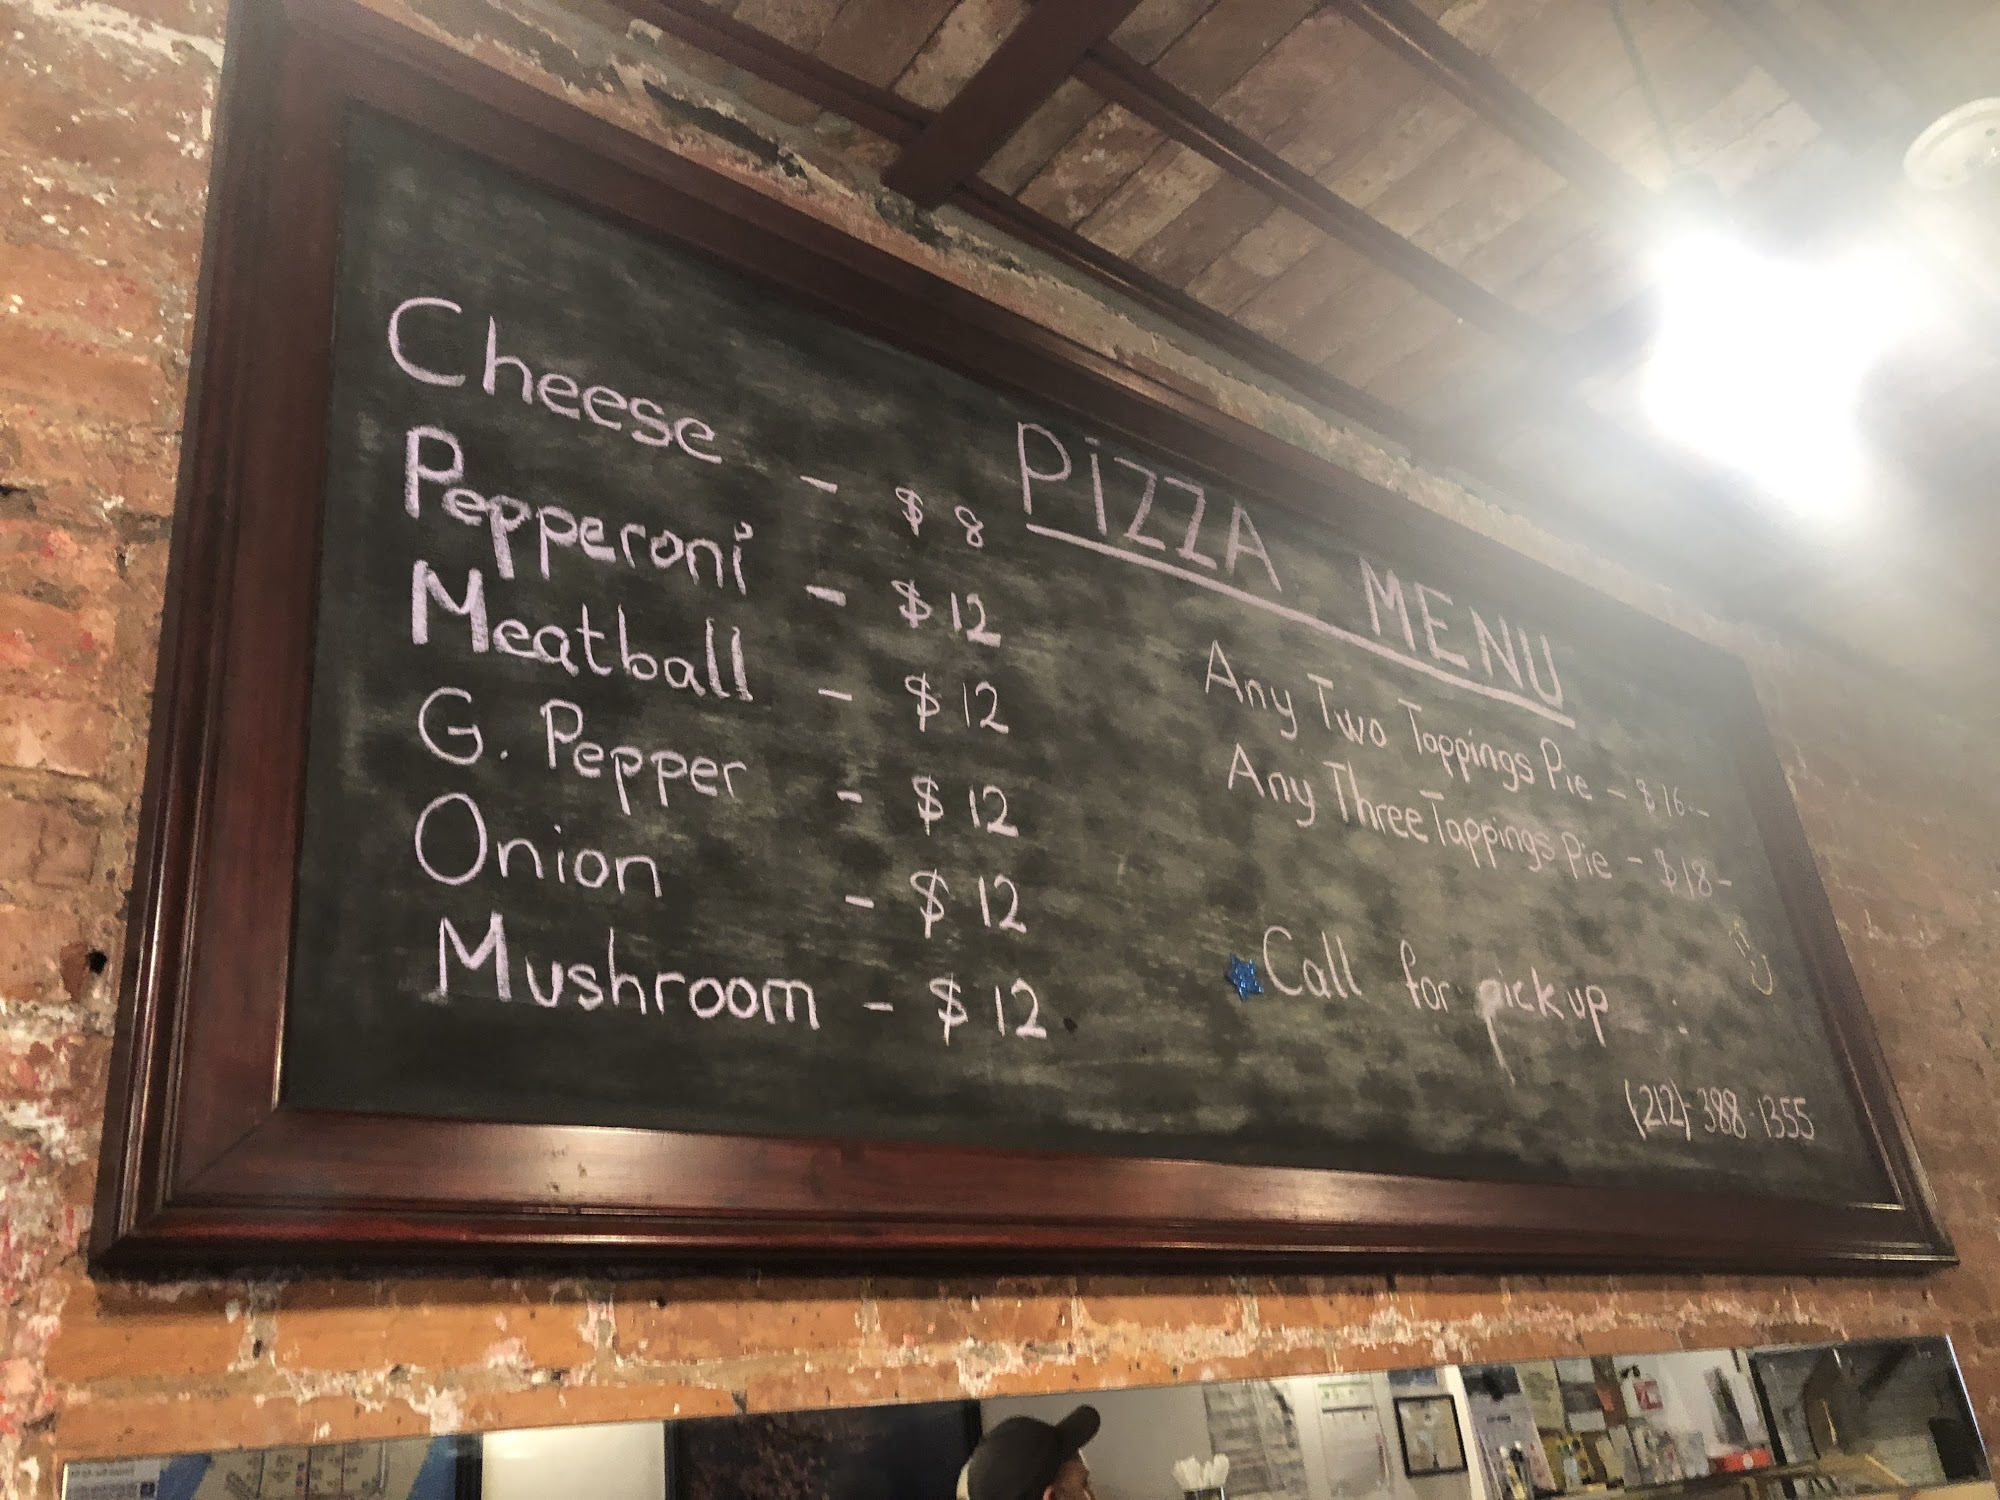 PiZZA MENU
Cheese - $ 8
Pepperoni - $ 12
Meatball - $ 12
G. Pepper - $ 12
Onion - $ 12
Mushroom - $ 12
Any Two Toppings Pie - $16.-
Any Three Toppings Pie - $18-
Call for pick up :
(212)-388-1355